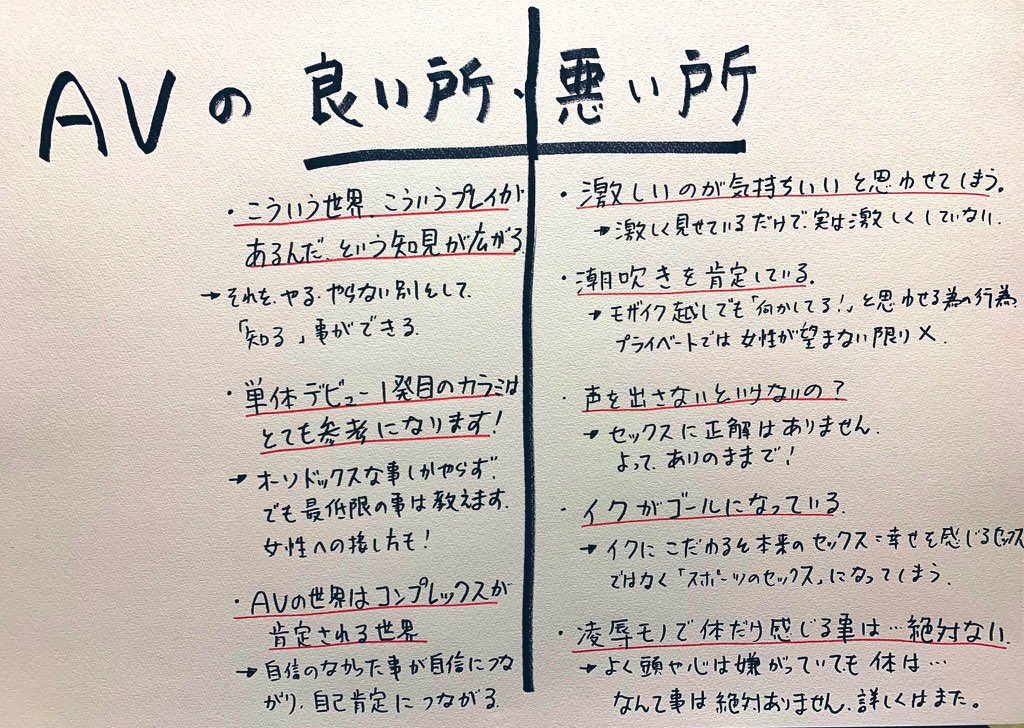 AVの良い所・悪い所
・こういう世界、こういうプレイが
あるんだ、という知見が広がる
→それを、やる・やらない別として、
「知る」事ができる。
・単体デビュー1発目のカラミは
とても参考になります!
→オーソドックスな事しかやらず、
でも最低限の事は教えます。
女性への接し方も!
・AVの世界はコンプレックスが
肯定される世界
→自信のなかった事が自信につな
がり、自己肯定につながる。
・激しいのが気持ちいいと思わせてしまう。
→激しく見せているだけで、実は激しくしていない。
・潮吹きを肯定している。
→モザイク越しでも「何かしてる!」と思わせる為の行為。
プライベートでは女性が望まない限り×。
・声を出さないといけないの?
→セックスに正解はありません。
よって、ありのままで!
・イクがゴールになっている。
→イクにこだわると本来のセックス=幸せを感じるセックス
ではなく「スポーツのセックス」になってしまう。
・凌辱モノで体だけ感じる事は…絶対ない
→よく頭や心は嫌がっていても体は…
なんて事は絶対ありません。詳しくはまた。